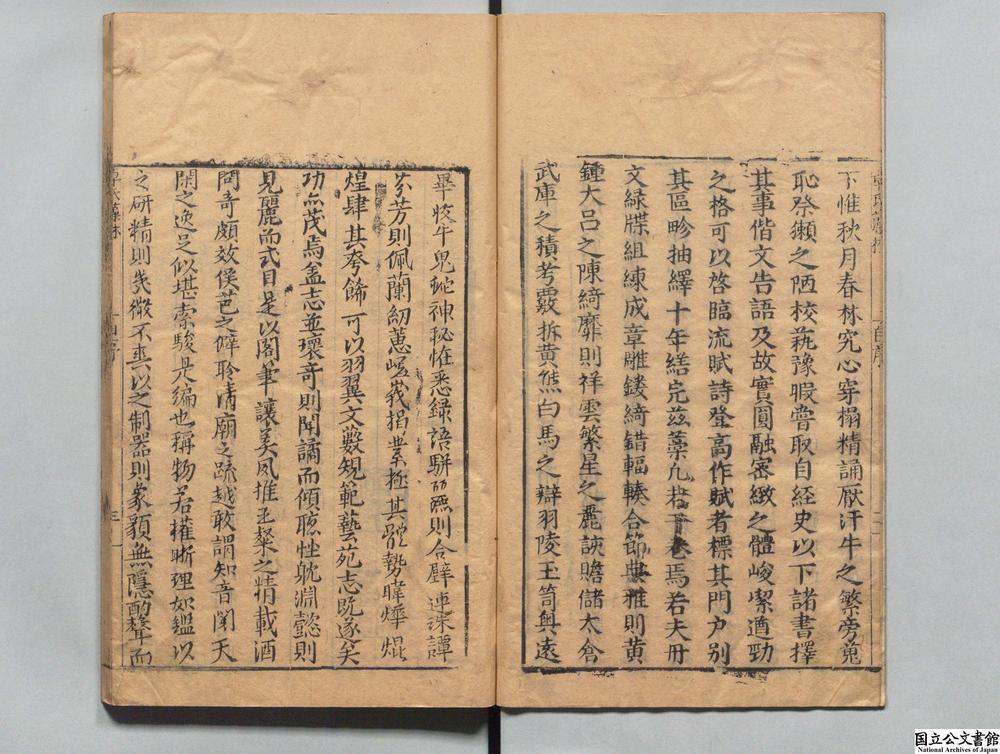 下惟秋月春林究心穿榻精誦厭汗牛之繁旁蒐
恥祭獺之陋校蓺豫暇嘗取自経史以下諸書擇
其事偕文告語及故實圓融密緻之體峻潔遒勁
之格可以啓臨流賦詩登高作賦者標其門户別
其區畛抽繹十年繕完兹藁凡若干巻焉若夫冊
文緑牒組練成章雕鏤綺錯輻輳合節典雅則黄
鍾大吕之陳綺靡則祥雲繁星之麗該贍儲太倉
武庫之積考覈拆黄熊白馬之辯羽陵玉笥與遠
畢牧牛鬼蛇神秘恠悉録語駢則合璧連珠譚
芬芳則佩蘭紉蕙嵯峩揭業極其體勢暐燁焜
煌肆其夸餙可以羽翼文藪規範藝苑志既遂矣
功亦茂焉盖志並瓌竒則聞譎而傾聴性躭淵懿則
見麗而式目是以閣筆讓美夙推王粲之精載酒
問竒頗效侯芭之僻聆清廟之疏越敢謂知音閑天
閑之逸足似堪索駿是編也稱物若權晰理如鑑以
之研精則幾微不爽以之制器則象類無隱酌群而
自序
三
国立公文書館
National Archives of Japan